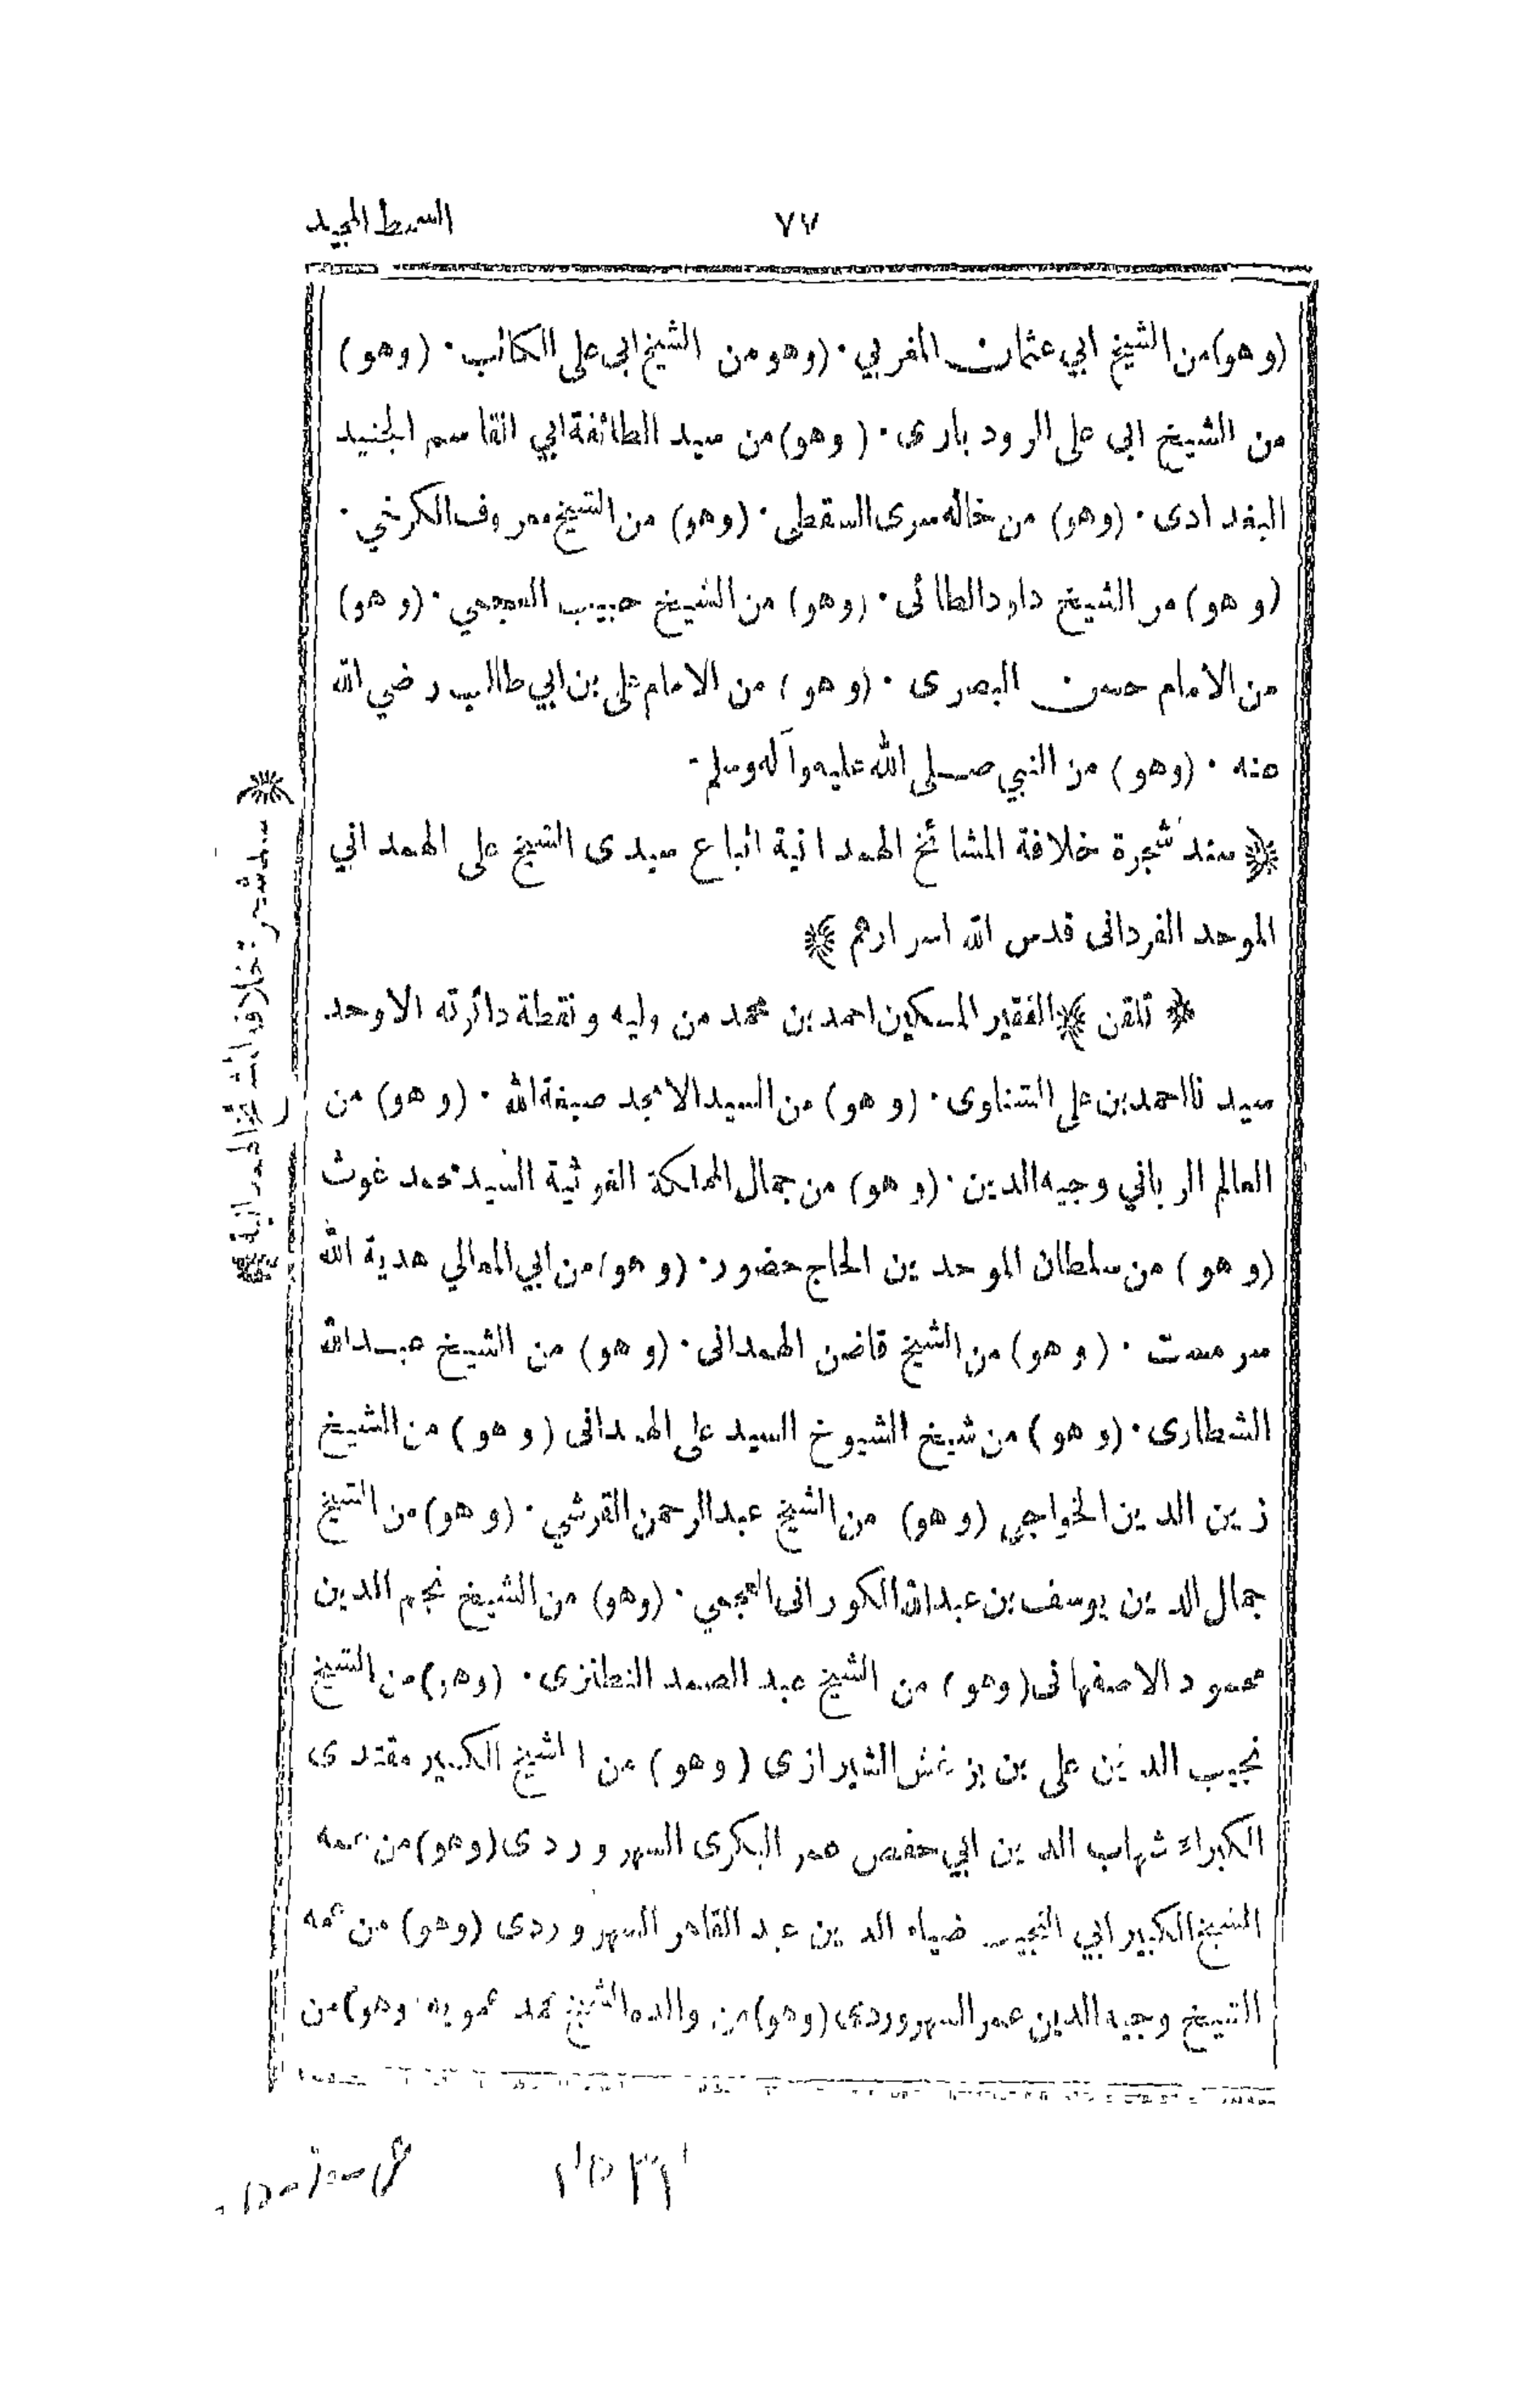 السمط المجيد
٧٧
(وهو) من الشيخ ابي عثمان المغربي · (وهو من الشيخ ابي علي الكاتب · (وهو)
من الشيخ ابي علي الرودبارى · (وهو) من سيد الطائفة ابي القاسم الجنيد
البغدادى · (وهو) من خاله سرى السقطى · (وهو) من الشيخ معروف الكرخي ·
(وهو) من الشيخ داود الطائى · (وهو) من الشيخ حبيب العجمي · (وهو)
من الامام حسن البصرى · (وهو) من الامام علي بن ابي طالب رضي الله
عنه · (وهو) من النبي صلى الله عليه وآله وسلم ·
﴿ سند شجرة خلافة المشائخ الهمدانية اتباع سيدى الشيخ على الهمداني
الموحد الفردانى قدس الله اسرارهم ﴾
﴿ تلقن ﴾ الفقير المسكين احمد بن محمد من وليه ونقطة دائرته الاوحد
سيدنا احمد بن على الشناوى · (وهو) من السيد الامجد صبغة الله · (وهو) من
العالم الرباني وجيه الدين · (وهو) من جمال المملكة الغوثية السيد محمد غوث
(وهو) من سلطان الموحدين الحاج حضور · (وهو) من ابي المعالي هدية الله
سرمست · (وهو) من الشيخ قاضن الهمدانى · (وهو) من الشيخ عبد الله
الشطارى · (وهو) من شيخ الشيوخ السيد على الهمدانى (وهو) من الشيخ
زين الدين الخواجى (وهو) من الشيخ عبد الرحمن القرشي · (وهو) من الشيخ
جمال الدين يوسف بن عبد الله الكورانى العجمي · (وهو) من الشيخ نجم الدين
محمود الاصفهانى (وهو) من الشيخ عبد الصمد النطنزى · (وهو) من الشيخ
نجيب الدين على بن بزغش الشيرازى (وهو) من الشيخ الكبير مقتدى
الكبراء شهاب الدين ابي حفص عمر البكرى السهروردى (وهو) من عمه
الشيخ الكبير ابي النجيب ضياء الدين عبد القاهر السهروردى (وهو) من عمه
الشيخ وجيه الدين عمر السهروردى (وهو) من والده الشيخ محمد عمويه · وهو) من
﴿ سند شجرة خلافة المشائخ الهمدانية ﴾